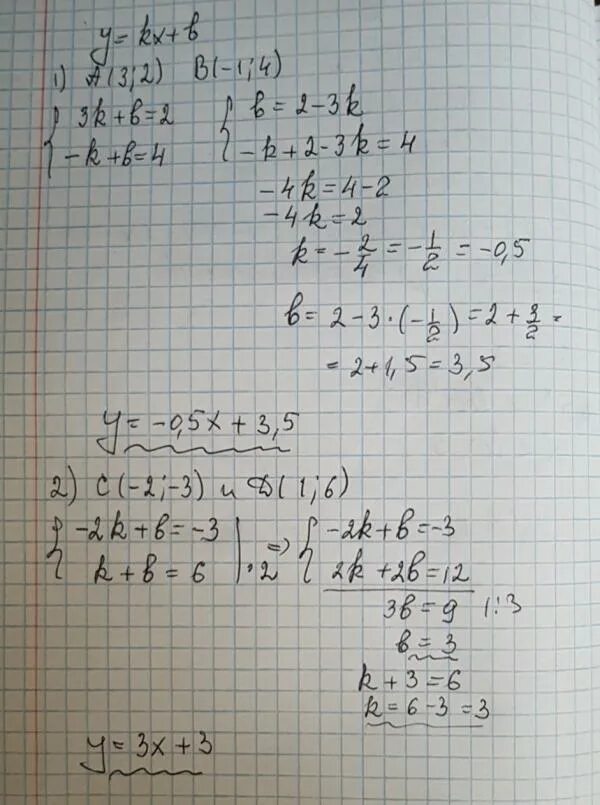 y = kx + b
1) A(3; 2) B(-1; 4)
{ 3k + b = 2
-k + b = 4
{ b = 2 - 3k
-k + 2 - 3k = 4
-4k = 4 - 2
-4k = 2
k = -2/4 = -1/2 = -0,5
b = 2 - 3 · (-1/2) = 2 + 3/2 =
= 2 + 1,5 = 3,5
y = -0,5x + 3,5
2) C(-2; -3) и D(1; 6)
{ -2k + b = -3
k + b = 6 | · 2
=> { -2k + b = -3
2k + 2b = 12
3b = 9 | : 3
b = 3
k + 3 = 6
k = 6 - 3 = 3
y = 3x + 3